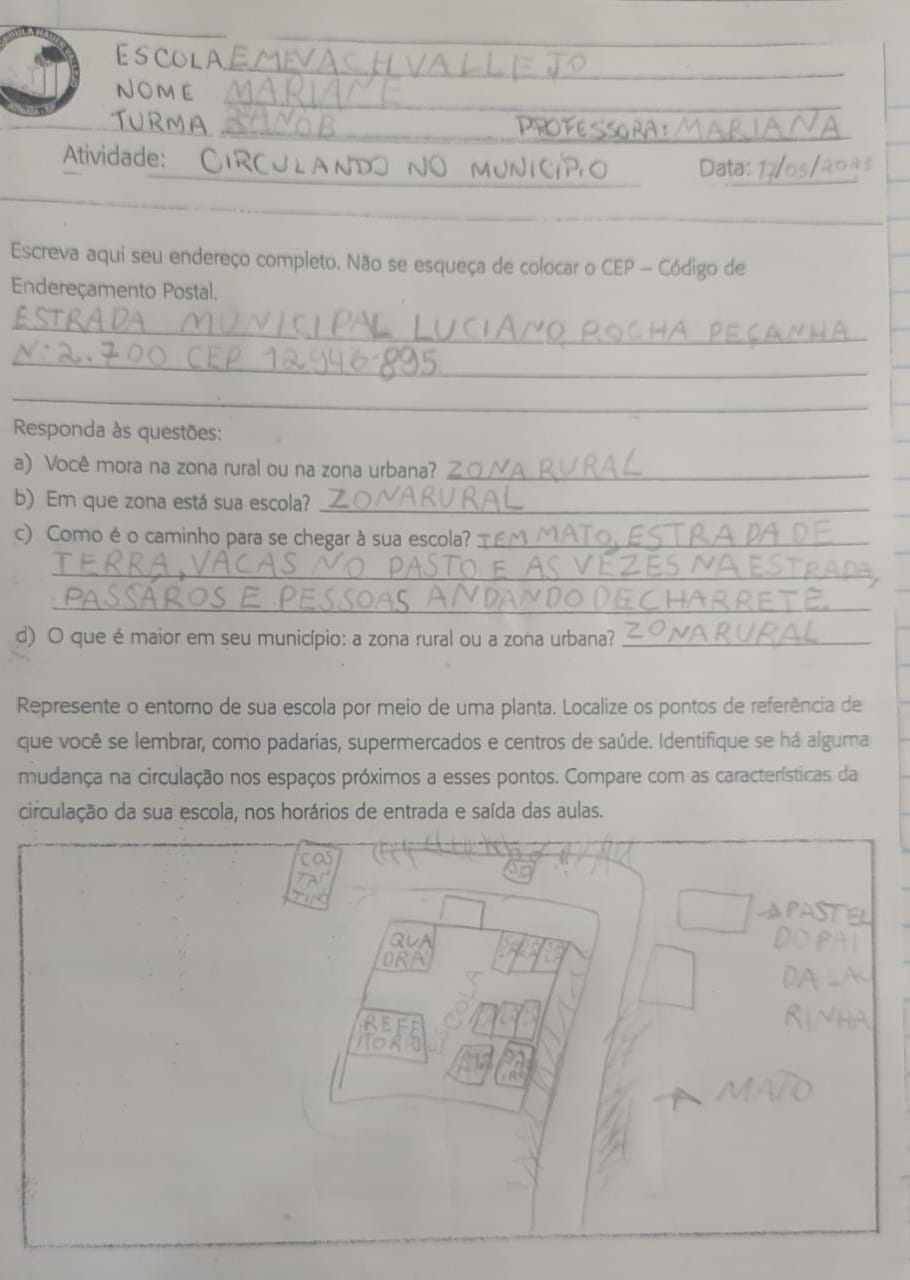 ESCOLA EMEVACHVALLEJO
NOME MARIANE
TURMA ANOB PROFESSORA: MARIANA
Atividade: CIRCULANDO NO MUNICÍPIO Data: 17/05/2021
Escreva aqui seu endereço completo. Não se esqueça de colocar o CEP – Código de
Endereçamento Postal.
ESTRADA MUNICIPAL LUCIANO ROCHA PEÇANHA
N: 2.700 CEP 12946-895
Responda às questões:
a) Você mora na zona rural ou na zona urbana? ZONA RURAL
b) Em que zona está sua escola? ZONARURAL
c) Como é o caminho para se chegar à sua escola? TEM MATO, ESTRADA DE
TERRA, VACAS NO PASTO E AS VEZES NA ESTRADA,
PASSÁROS E PESSOAS ANDANDO DE CHARRETE.
d) O que é maior em seu município: a zona rural ou a zona urbana? ZONARURAL
Represente o entorno de sua escola por meio de uma planta. Localize os pontos de referência de
que você se lembrar, como padarias, supermercados e centros de saúde. Identifique se há alguma
mudança na circulação nos espaços próximos a esses pontos. Compare com as características da
circulação da sua escola, nos horários de entrada e saída das aulas.
COS
TA
QUA
DRA
ESCOLA
REFE
ITORIO
PASTEL
DO PAI
DA LA
RINHA
MATO